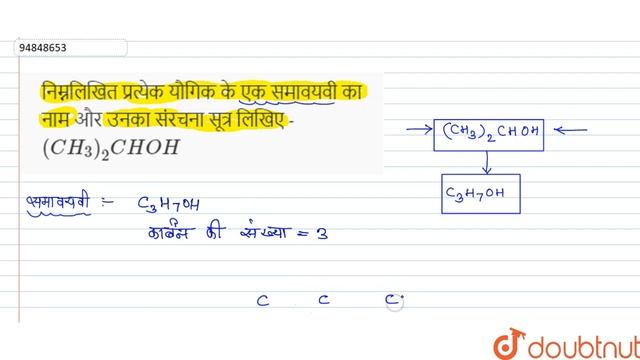 94848653
निम्नलिखित प्रत्येक यौगिक के एक समावयवी का
नाम और उनका संरचना सूत्र लिखिए -
(CH₃)₂CHOH
(CH₃)₂CHOH
C₃H₇OH
समावयवी :- C₃H₇OH
कार्बन की संख्या = 3
C C C
doubtnut